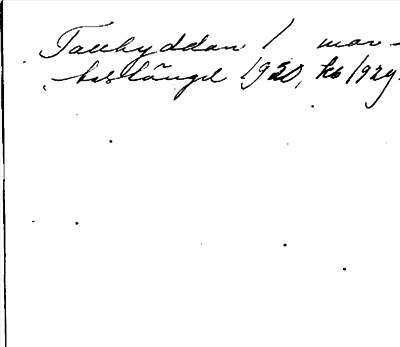 Tallhyddan 1 man-
talslängd 1920, kb 1929.